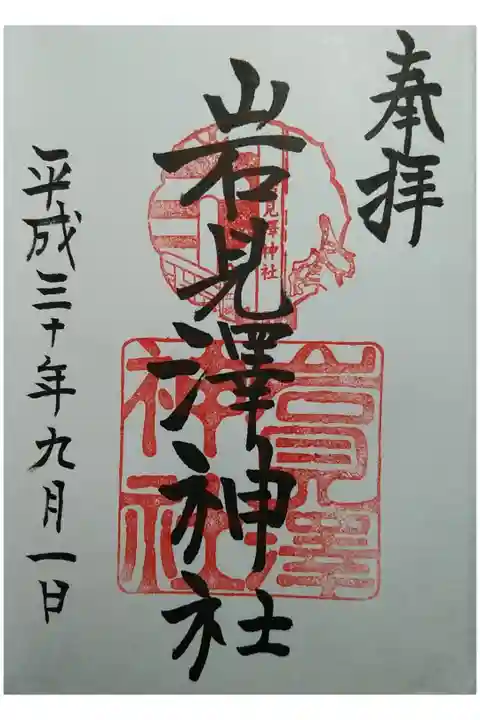 奉拝
岩見澤神社
岩見澤神社
岩見澤神社
平成三十年九月一日